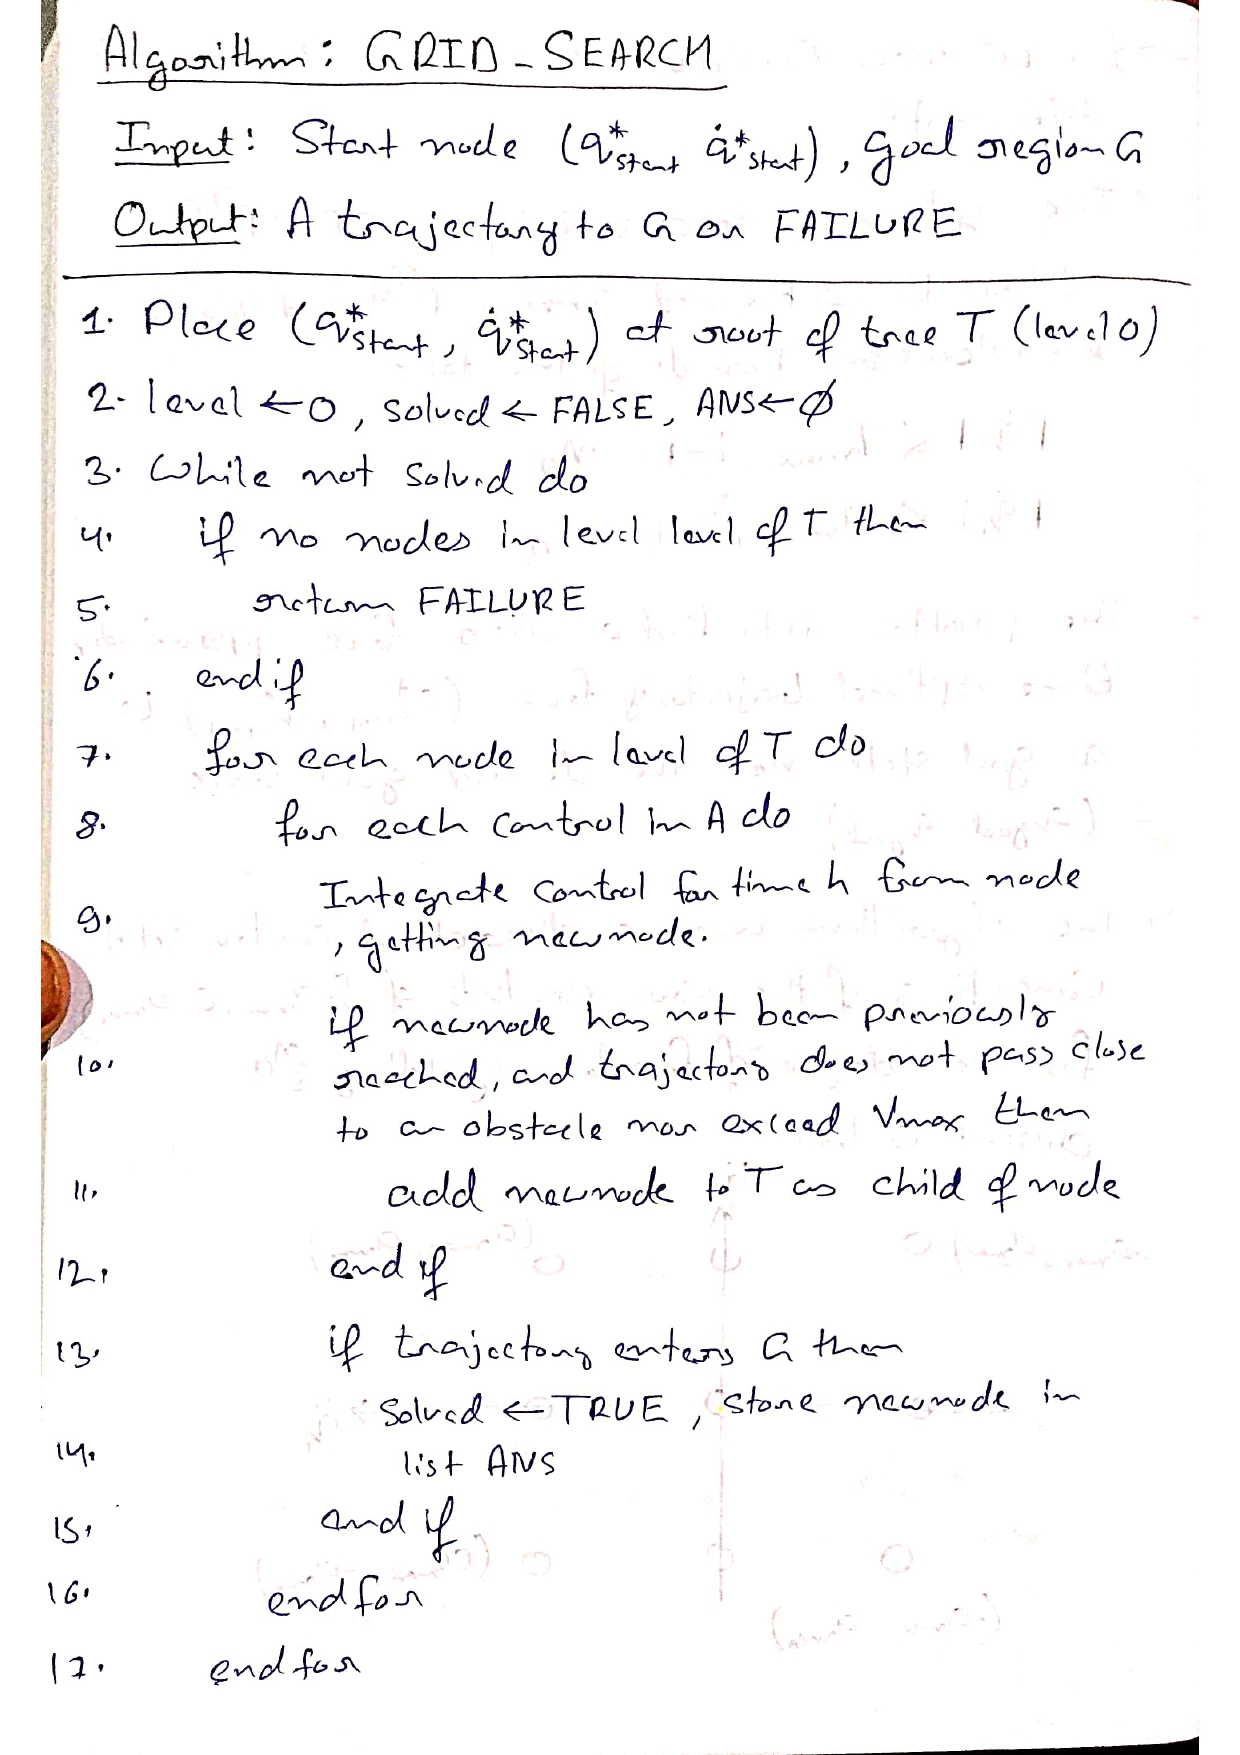 Algorithm: GRID_SEARCH
Input: Start node (q*start q̇*start), goal region G
Output: A trajectory to G or FAILURE
1. Place (q*start, q̇*start) at root of tree T (level 0)
2. level ← 0, solved ← FALSE, ANS ← ∅
3. While not solved do
4. if no nodes in level level of T then
5. return FAILURE
6. end if
7. for each node in level of T do
8. for each control in A do
9. Integrate control for time h from node
, getting newnode.
if newnode has not been previously
10. reached, and trajectory does not pass close
to an obstacle nor exceed Vmax then
11. add newnode to T as child of node
12. end if
13. if trajectory enters G then
Solved ← TRUE, store newnode in
14. list ANS
15. end if
16. end for
17. end for